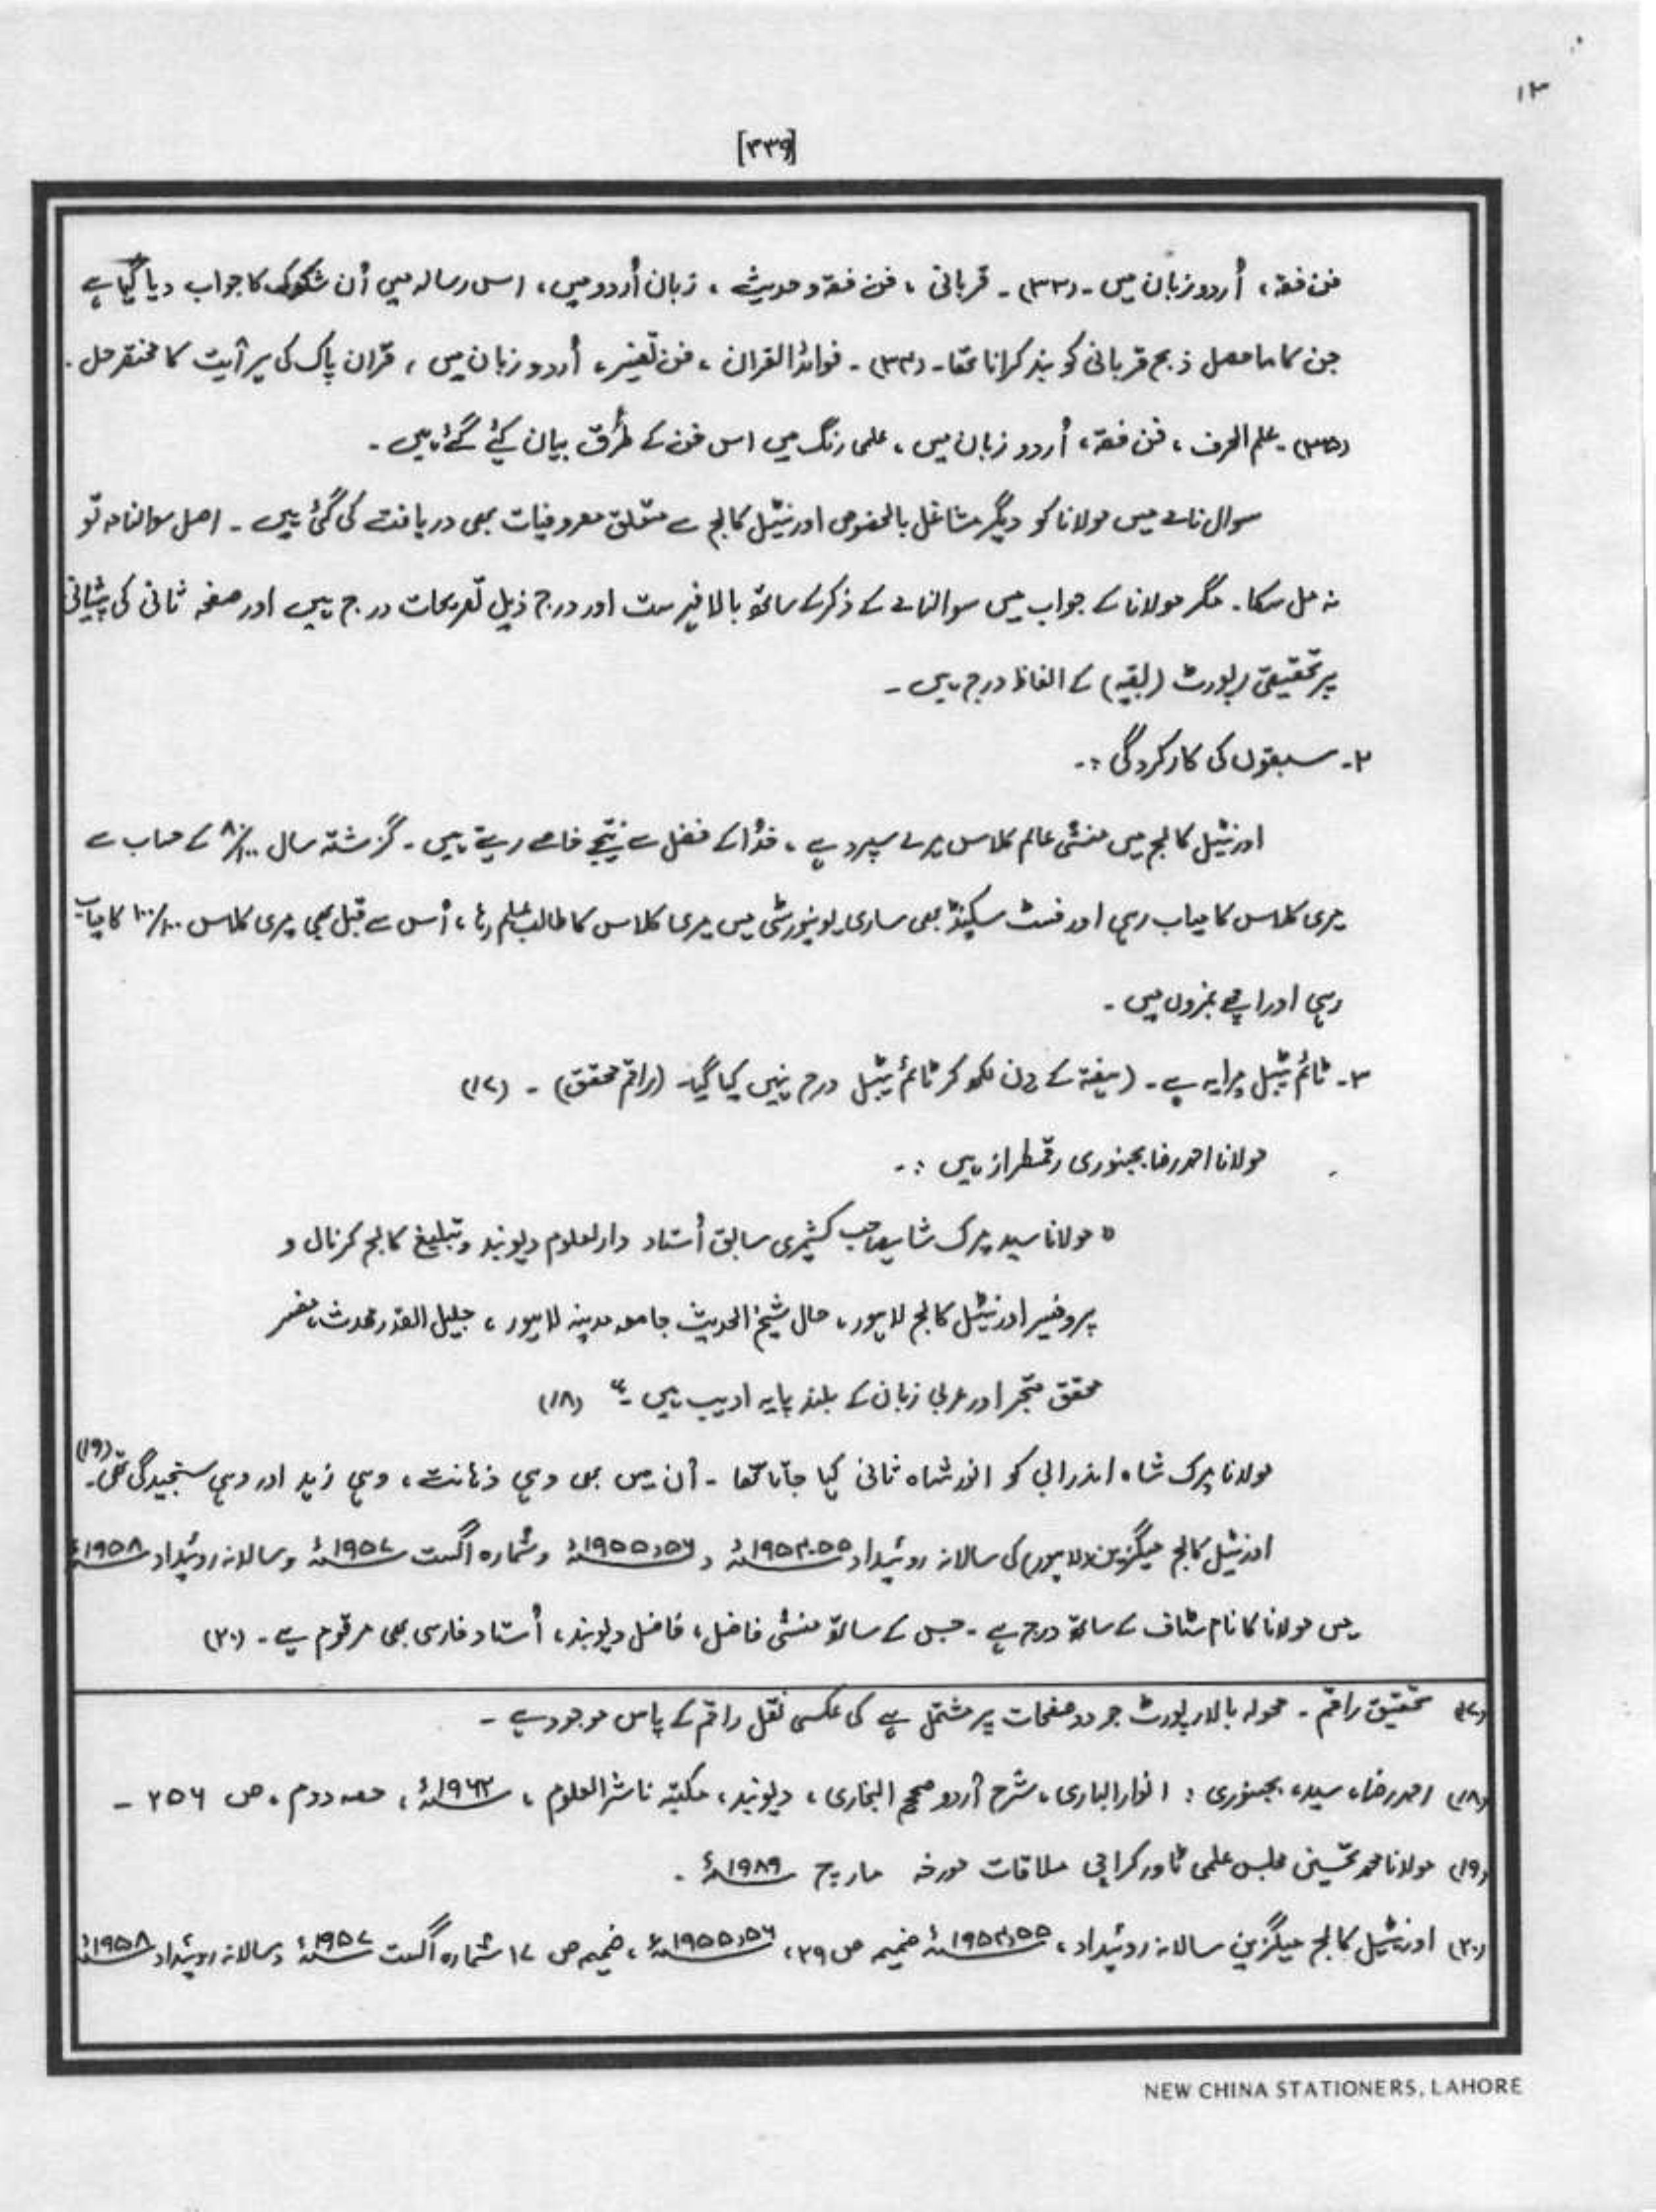 ۱۳
[۳۳۹]
فن فقہ، اُردو زبان میں۔ (۳۳)۔ قربانی، فن فقہ و حدیث، زبان اُردو میں، اس رسالہ میں اُن شکوک کا جواب دیا گیا ہے
جن کا ماحصل ذبح قربانی کو بند کرانا تھا۔ (۳۴)۔ فوائد القران، فن تفسیر، اُردو زبان میں، قرآن پاک کی ہر آیت کا مختصر حل۔
(۳۵)۔ علم الحرف، فن فقہ، اُردو زبان میں، علمی رنگ میں اس فن کے طُرق بیان کیے گئے ہیں۔
سوال نامے میں مولانا کو دیگر مشاغل بالخصوص اورنیٹل کالج سے متعلق مصروفیات بھی دریافت کی گئی ہیں۔ اصل سوالنامہ تو
نہ مل سکا۔ مگر مولانا کے جواب میں سوالنامے کے ذکر کے ساتھ بالا فہرست اور درج ذیل تصریحات درج ہیں اور صفحہ ثانی کی پیشانی
پر تحقیقی رپورٹ (بقیہ) کے الفاظ درج ہیں۔
۲۔ سبقوں کی کارکردگی :۔
اورنیٹل کالج میں منشی عالم کلاس میرے سپرد ہے، خُدا کے فضل سے نتیجے خاصے رہتے ہیں۔ گزشتہ سال ۸۰/۱۰۰ کے حساب سے
میری کلاس کامیاب رہی اور فسٹ سیکنڈ بھی ساری یونیورسٹی میں میری کلاس کا طالب علم رہا، اُس سے قبل بھی میری کلاس ۱۰۰/۱۰۰ کامیاب
رہی اور اچھے نمبروں میں۔
۳۔ ٹائم ٹیبل میرا یہ ہے۔ (ہفتہ کے دن لکھ کر ٹائم ٹیبل درج نہیں کیا گیا۔ (راقم محقق)۔ (۱۷)
مولانا احمد رضا بجنوری رقمطراز ہیں :۔
" مولانا سید میرک شاہ صاحب کشمیری سابق اُستاد دارالعلوم دیوبند و تبلیغ کالج کرنال و
پروفیسر اورنیٹل کالج لاہور، حال شیخ الحدیث جامعہ مدینہ لاہور، جلیل القدر محدث، مفسر
محقق متبحر اور عربی زبان کے بلند پایہ ادیب ہیں۔" (۱۸)
مولانا میرک شاہ اندرابی کو انور شاہ ثانی کہا جاتا تھا۔ اُن میں بھی وہی ذہانت، وہی زہد اور وہی سنجیدگی تھی۔ (۱۹)
اورنیٹل کالج میگزین (لاہور) کی سالانہ روئیداد ۵۵۔۱۹۵۴ء و ۵۶و۱۹۵۵ء و شمارہ اگست ۱۹۵۷ء و سالانہ روئیداد ۱۹۵۸ء
میں مولانا کا نام سٹاف کے ساتھ درج ہے۔ جس کے ساتھ منشی فاضل، فاضل دیوبند، اُستاد فارسی بھی مرقوم ہے۔ (۲۰)
(۱۷) تحقیق راقم۔ محولہ بالا رپورٹ جو دو صفحات پر مشتمل ہے کی عکسی نقل راقم کے پاس موجود ہے۔
(۱۸) احمد رضا، سید، بجنوری : انوار الباری، شرح اُردو صحیح البخاری، دیوبند، مکتبہ ناشر العلوم، ۱۹۶۲ء، حصہ دوم، ص ۲۵۶۔
(۱۹) مولانا محمد تحسینی مجلس علمی ٹاور کراچی ملاقات مورخہ مارچ ۱۹۸۹ء۔
(۲۰) اورنیٹل کالج میگزین سالانہ روئیداد، ۵۵و۱۹۵۴ء ضمیمہ ص ۲۹، ۵۶و۱۹۵۵ء، ضمیمہ ص ۱۷ شمارہ اگست ۱۹۵۷ء و سالانہ روئیداد ۱۹۵۸ء
NEW CHINA STATIONERS, LAHORE